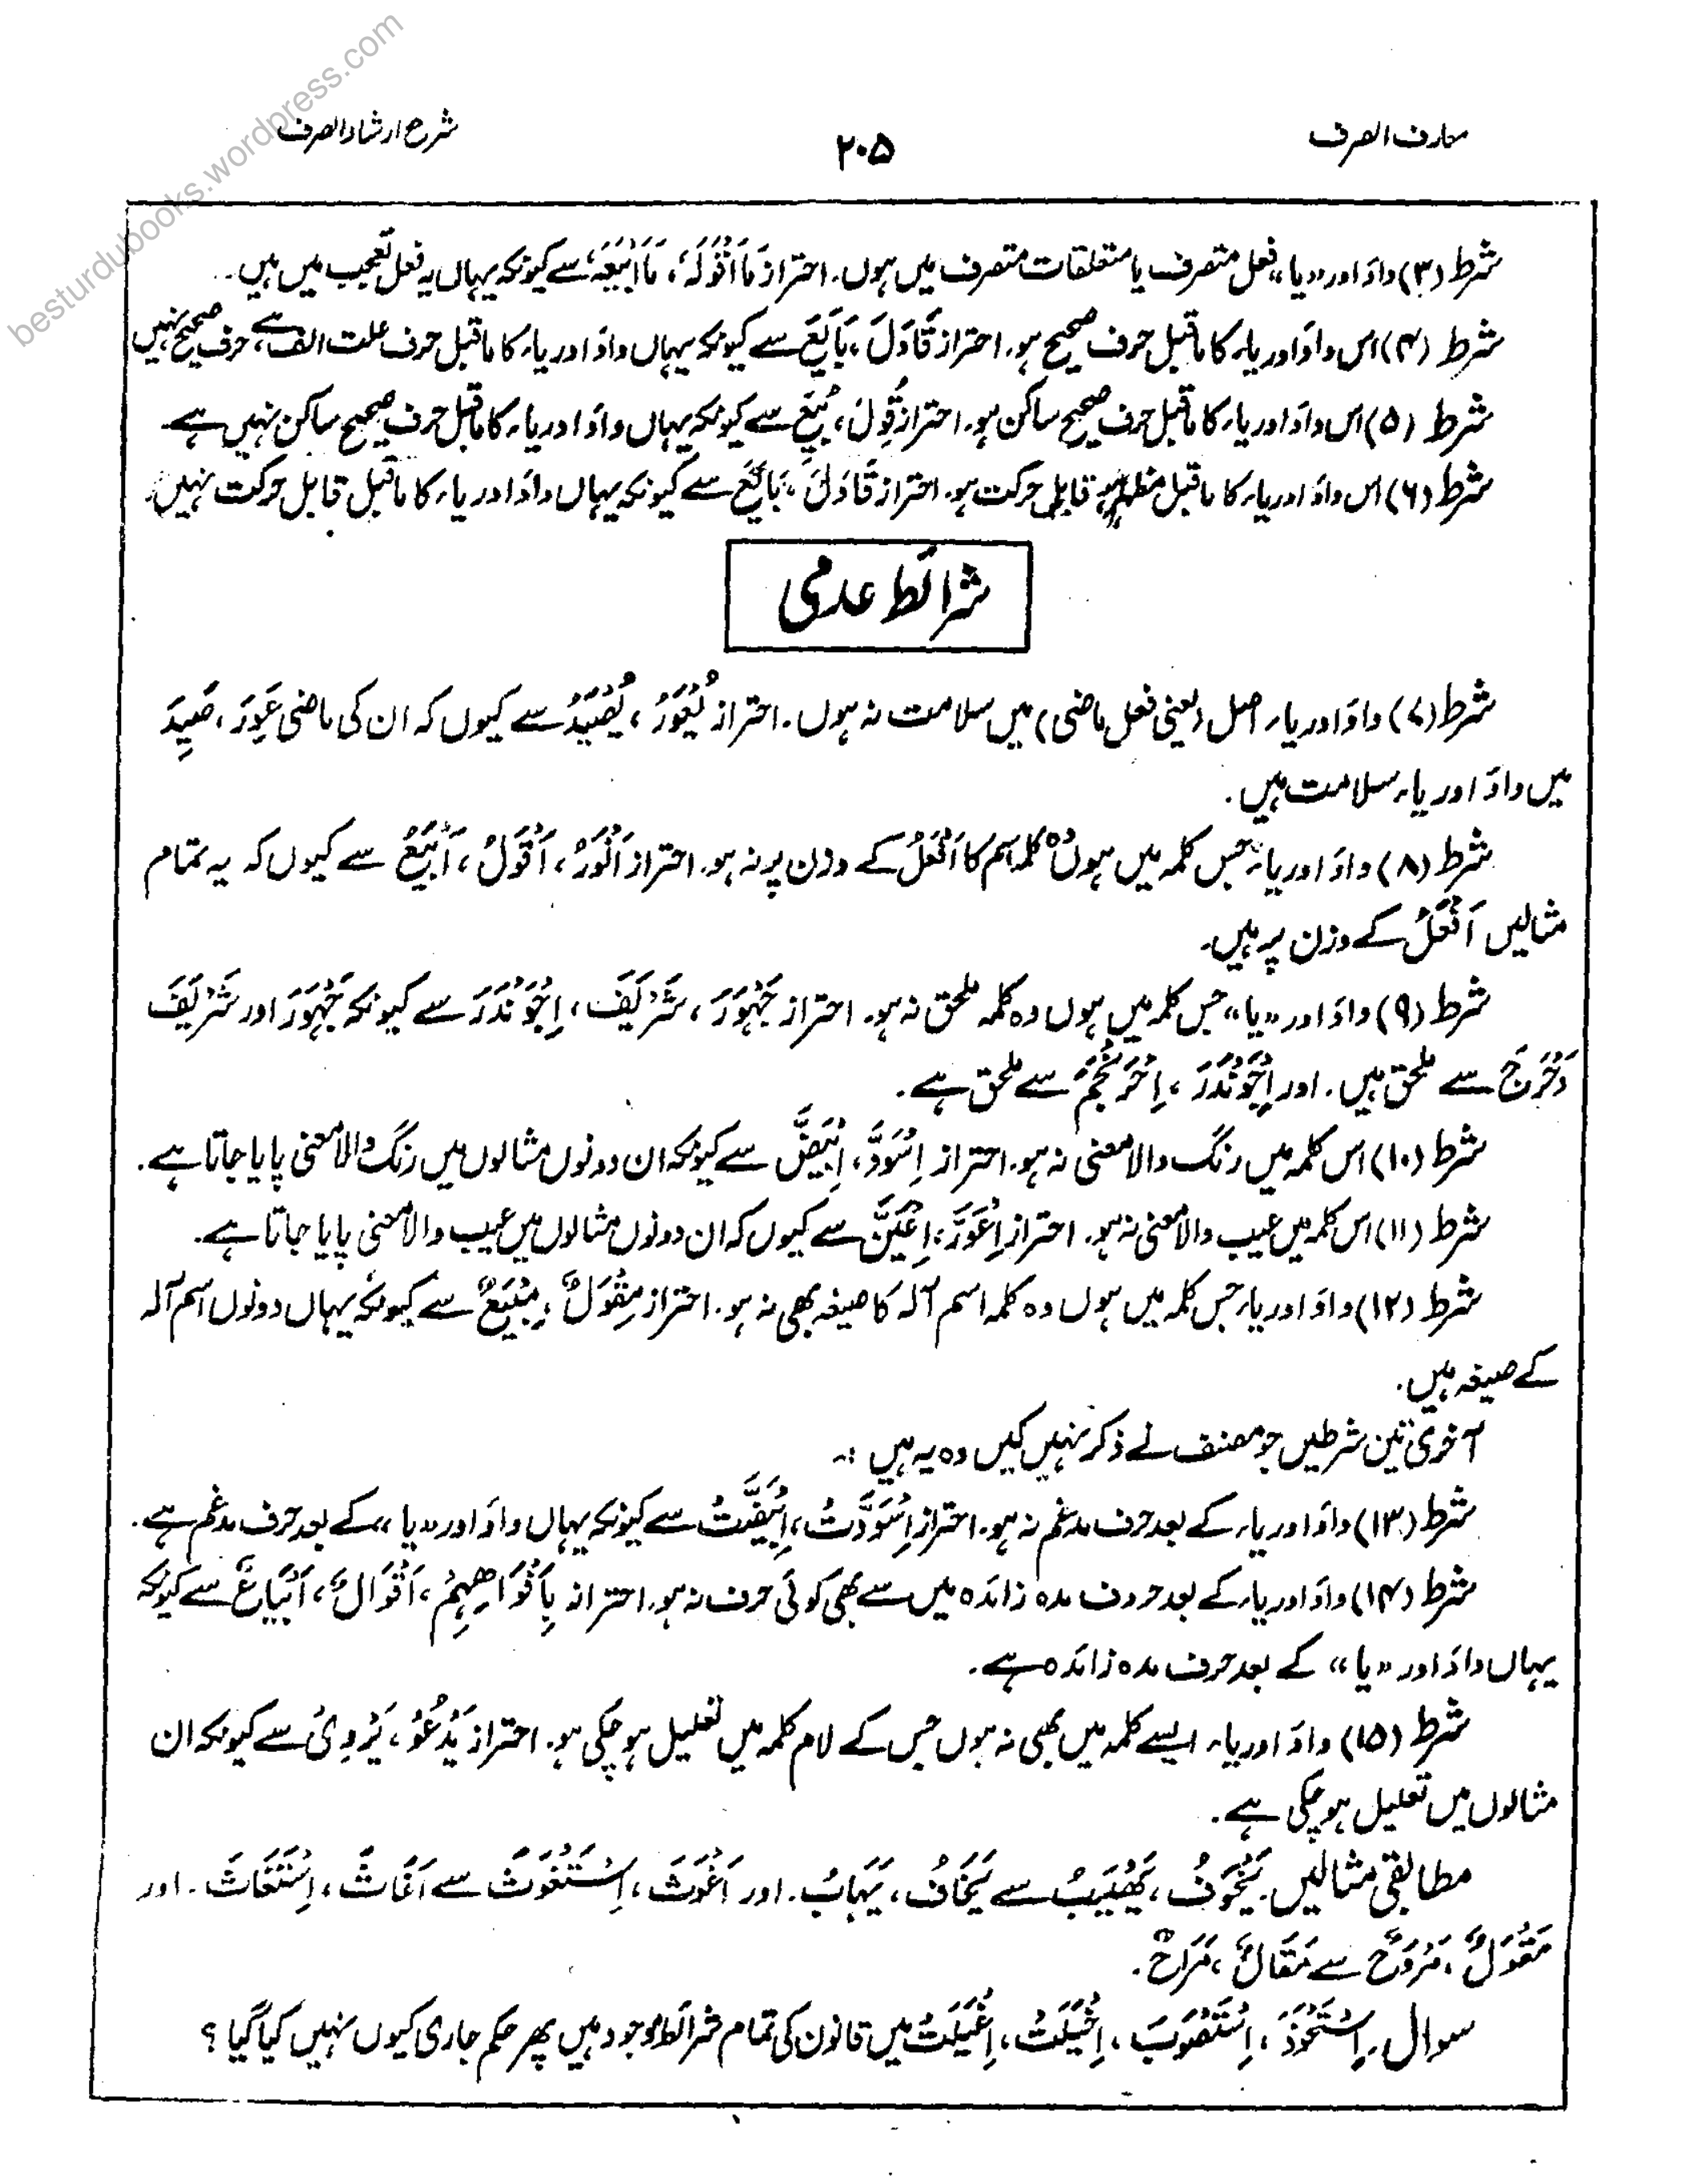 معارف الصرف
۲۰۵
شرح ارشاد الصرف
besturdubooks.wordpress.com
شرط (۳) واؤ اور «یا» فعل متصرف یا متعلقات متصرف میں ہوں. احتراز مَا اَقْوَلَہٗ، مَا اَبْیَعَہٗ سے کیونکہ یہاں یہ فعل تعجب میں ہیں۔
شرط (۴) اس واؤ اور یاء کا ماقبل حرف صحیح ہو. احتراز قَاوَلَ، بَایَعَ سے کیونکہ یہاں واؤ اور یاء کا ماقبل حرف علت الف ہے، حرف صحیح نہیں
شرط (۵) اس واؤ اور یاء کا ماقبل حرف صحیح ساکن ہو. احتراز قُوِلَ، بُیِعَ سے کیونکہ یہاں واؤ اور یاء کا ماقبل حرف صحیح ساکن نہیں ہے۔
شرط (۶) اس واؤ اور یاء کا ماقبل مظہر ہو قابل حرکت ہو. احتراز قَاوَلَ، بَایَعَ سے کیونکہ یہاں واؤ اور یاء کا ماقبل قابل حرکت نہیں.
شرائط عدمی
شرط (۷) واؤ اور یاء اصل (یعنی فعل ماضی) میں سلامت نہ ہوں. احتراز یَعْوَرُ، یَصْیَدُ سے کیوں کہ ان کی ماضی عَوِرَ، صَیِدَ
میں واؤ اور یاء سلامت ہیں.
شرط (۸) واؤ اور یاء جس کلمہ میں ہوں وہ کلمہ اسم کا اَفْعَلُ کے وزن پر نہ ہو. احتراز اَنْوَرُ، اَقْوَلُ، اَبْیَعُ سے کیوں کہ یہ تمام
مثالیں اَفْعَلُ کے وزن پر ہیں۔
شرط (۹) واؤ اور «یا» جس کلمہ میں ہوں وہ کلمہ ملحق نہ ہو. احتراز جَہْوَرَ، شَرْیَفَ، اِجْوَنْدَرَ سے کیونکہ جَہْوَرَ اور شَرْیَفَ
دَحْرَجَ سے ملحق ہیں. اور اِجْوَنْدَرَ، اِحْرَنْجَمَ سے ملحق ہے.
شرط (۱۰) اس کلمہ میں رنگ والا معنی نہ ہو. احتراز اِسْوَدَّ، اِبْیَضَّ سے کیونکہ ان دونوں مثالوں میں رنگ والا معنی پایا جاتا ہے.
شرط (۱۱) اس کلمہ میں عیب والا معنی نہ ہو. احتراز اِعْوَرَّ، اِعْیَنَّ سے کیوں کہ ان دونوں مثالوں میں عیب والا معنی پایا جاتا ہے.
شرط (۱۲) واؤ اور یاء جس کلمہ میں ہوں وہ کلمہ اسم آلہ کا صیغہ بھی نہ ہو. احتراز مِقْوَلٌ، مِبْیَعٌ سے کیونکہ یہاں دونوں اسم آلہ
کے صیغہ ہیں.
آخری تین شرطیں جو مصنف نے ذکر نہیں کیں وہ یہ ہیں :۔
شرط (۱۳) واؤ اور یاء کے بعد حرف مدغم نہ ہو. احتراز اِسْوَدَّتْ، اِبْیَضَّتْ سے کیونکہ یہاں واؤ اور «یا» کے بعد حرف مدغم ہے.
شرط (۱۴) واؤ اور یاء کے بعد حروف مدہ زائدہ میں سے بھی کوئی حرف نہ ہو. احتراز بِاَفْوَاھِہِمْ، اَقْوَالٌ، اَبْیَاعٌ سے کیونکہ
یہاں واؤ اور «یا» کے بعد حرف مدہ زائدہ ہے.
شرط (۱۵) واؤ اور یاء ایسے کلمہ میں بھی نہ ہوں جس کے لام کلمہ میں تعلیل ہو چکی ہو. احتراز یَدْعُوْ، یَرْوِیْ سے کیونکہ ان
مثالوں میں تعلیل ہو چکی ہے.
مطابقی مثالیں یَخْوَفُ، یَھْیَبُ سے یَخَافُ، یَہَابُ. اور اَغْوَثَ، اِسْتَغْوَثَ سے اَغَاثَ، اِسْتَغَاثَ. اور
مَقْوَلٌ، مَرْوَحٌ سے مَقَالٌ، مَرَاحٌ.
سوال۔ اِسْتَحْوَذَ، اِسْتَصْوَبَ، اَخْیَلَتْ، اَغْیَلَتْ میں قانون کی تمام شرائط موجود ہیں پھر حکم جاری کیوں نہیں کیا گیا ؟